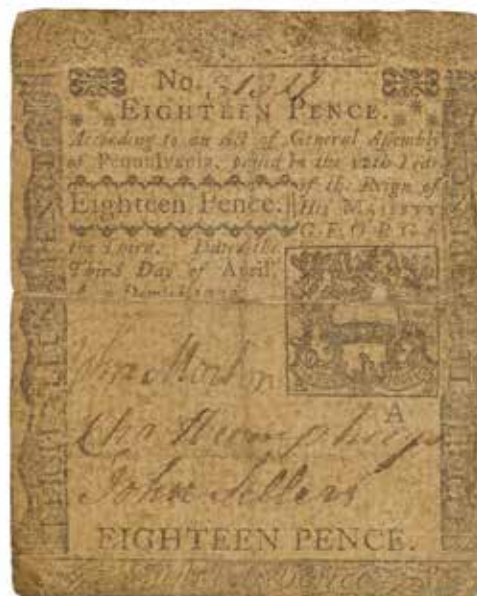 No. 
EIGHTEEN PENCE.
According to an Act of General Assembly
of Pennsylvania, passed in the 12th Year
of the Reign of
Eighteen Pence. His MAJESTY
GEORGE
the Third. Dated the
Third Day of April,
John Morton
Cha Humphreys
John Sellers
A
EIGHTEEN PENCE.